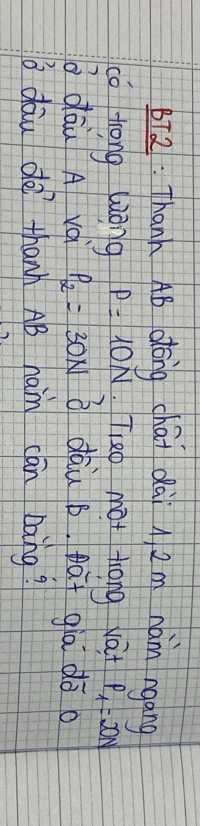 BT2: Thanh AB đồng chất dài 1,2m nằm ngang
có trọng lượng P = 10N. Treo một trọng vật P₁ = 20N
ở đầu A và P₂ = 30N ở đầu B. Đặt giá đỡ O
ở đâu để thanh AB nằm cân bằng?